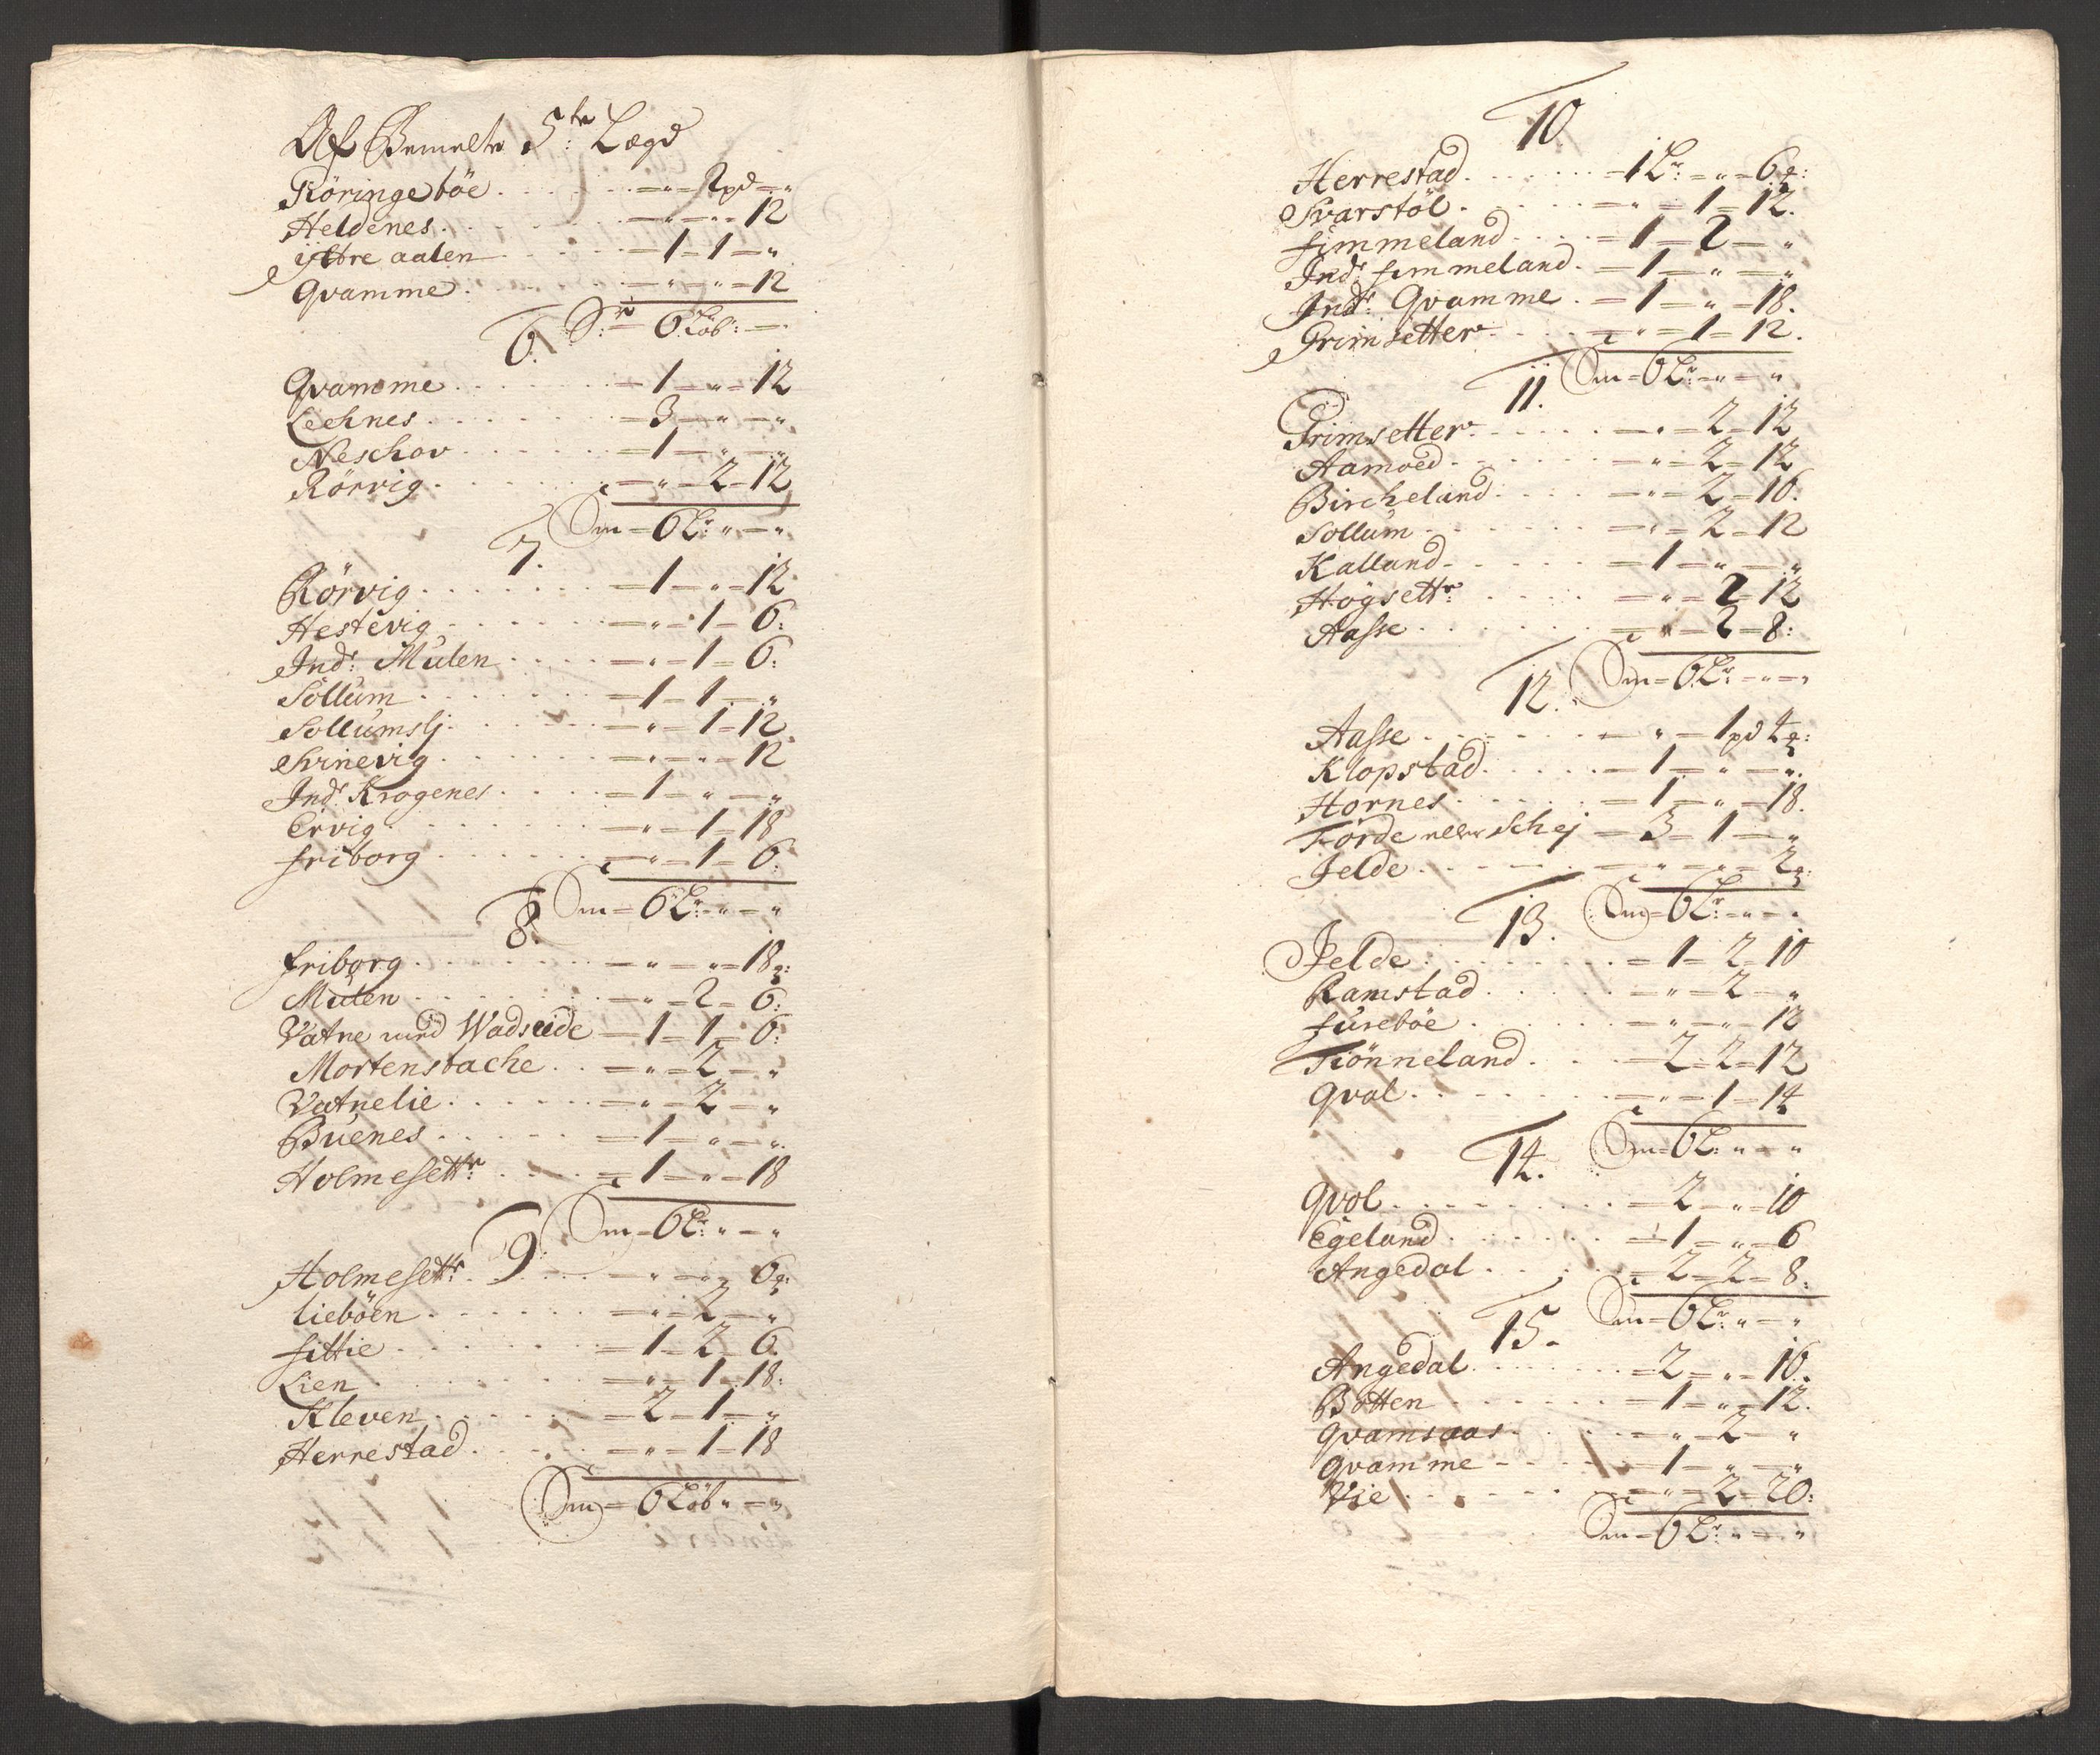 Af Bemelte 5te Lægd
Röringeböe . . . . . = „ = 2 pd = „
Heldenes . . . . . = „ = „ = 12
ÿttre aalen . . . . = 1 = 1 = „
Qvamme . . . . . = „ = „ = 12
Sr = 6 Löb: = „
6.
Qvamme . . . . . = 1 = „ = 12
Leehnes . . . . . = 3 = „ = „
Neschov . . . . . = 1 = „ = „
Rörvig . . . . . = „ = 2 = 12
Sm = 6 Lr: „ = „
7.
Rörvig . . . . . = 1 = „ = 12
Hestevig . . . . . = „ = 1 = 6:
Indr: Mulen . . . . = „ = 1 = 6:
Söllum . . . . . = 1 = 1 = „
Sollumslj . . . . . = „ = 1 = 12
Svinevig . . . . . = „ = „ = 12
Indr Krogenes . . . . = 1 = „ = „
Ervig . . . . . = „ = 1 = 18
friborg . . . . . = „ = 1 = 6.
Sm = 6 Lr: = „ = „
8.
friborg . . . . . = „ = „ = 18 :
Mulen . . . . . = „ = 2 = 6:
Vatne med Wadseide = 1 = 1 = 6:
Mortensbache . . = „ = 2 = „
Vatnelie . . . . . = „ = 2 = „
Buenes . . . . . = 1 = „ = „
Holmesettr: . . . . = 1 = „ = 18
Sm = 6 Lr: „ = „
9
Holmesettr: . . . . = „ = „ = 6 :
lieböen . . . . . = „ = 2 = „
fittie . . . . . = 1 = 2 = 6.
Lien . . . . . = „ = 1 = 18:
Kleven . . . . . = 2 = 1 = „
Herrestad . . . . . = „ = 1 = 18
Sm = 6 Löb „ = „
10.
Herrestad . . . . . = 1 Lr: = „ = 6 :
Svarstöl . . . . . = „ = 1 = 12.
fimmeland . . . . = 1 = 2 = „
Indr: fimmeland . = 1 = „ = „
Indr: Qvamme . = 1 = „ = 18.
Grimsetter . . . . = „ = 1 = 12.
Sm = 6 Lr: = „ = „
11.
Grimsetter . . . . . = „ = 2 = 12
Aamoed . . . . . = „ = 2 = 12
Bircheland . . . . = „ = 2 = 16.
Sollum . . . . . = „ = 2 = 12
Kalland . . . . . = 1 = „ = „
Högsettr: . . . . = „ = 2 = 12
Aasse . . . . . = „ = 2 = 8:
Sm = 6 Lr: = „ = „
12.
Aasse . . . . . = „ = 1 pd 4 :
Klopstad . . . . . = 1 = „ = „
Hornes . . . . . = 1 = „ = 18.
Förde eller Schej = 3 = 1 = „
Jelde . . . . . = „ = „ = 2 :
Sm = 6 Lr: = „ = „
13.
Jelde . . . . . = 1 = 2 = 10
Ramstad . . . . . = „ = 2 = „
fureböe . . . . . = „ = „ = 12
Tiönneland . . . . = 2 = 2 = 12
Qval . . . . . = „ = 1 = 14
Sm = 6 L: „ = „
14.
Qvol . . . . . = 2 = „ = 10
Egeland . . . . . = 1 = „ = 6
Angedal . . . . . = 2 = 2 = 8:
Sm = 6 Lr: „ = „
15.
Angedal . . . . . = 2 = „ = 16.
Botten . . . . . = 1 = „ = 12.
Qvamsaas . . . . . = „ = 2 = „
Qvamme = . . . . = 1 = „ = „
Vie . . . . . = „ = 2 = 20:
Sm = 6 Lr: „ = „